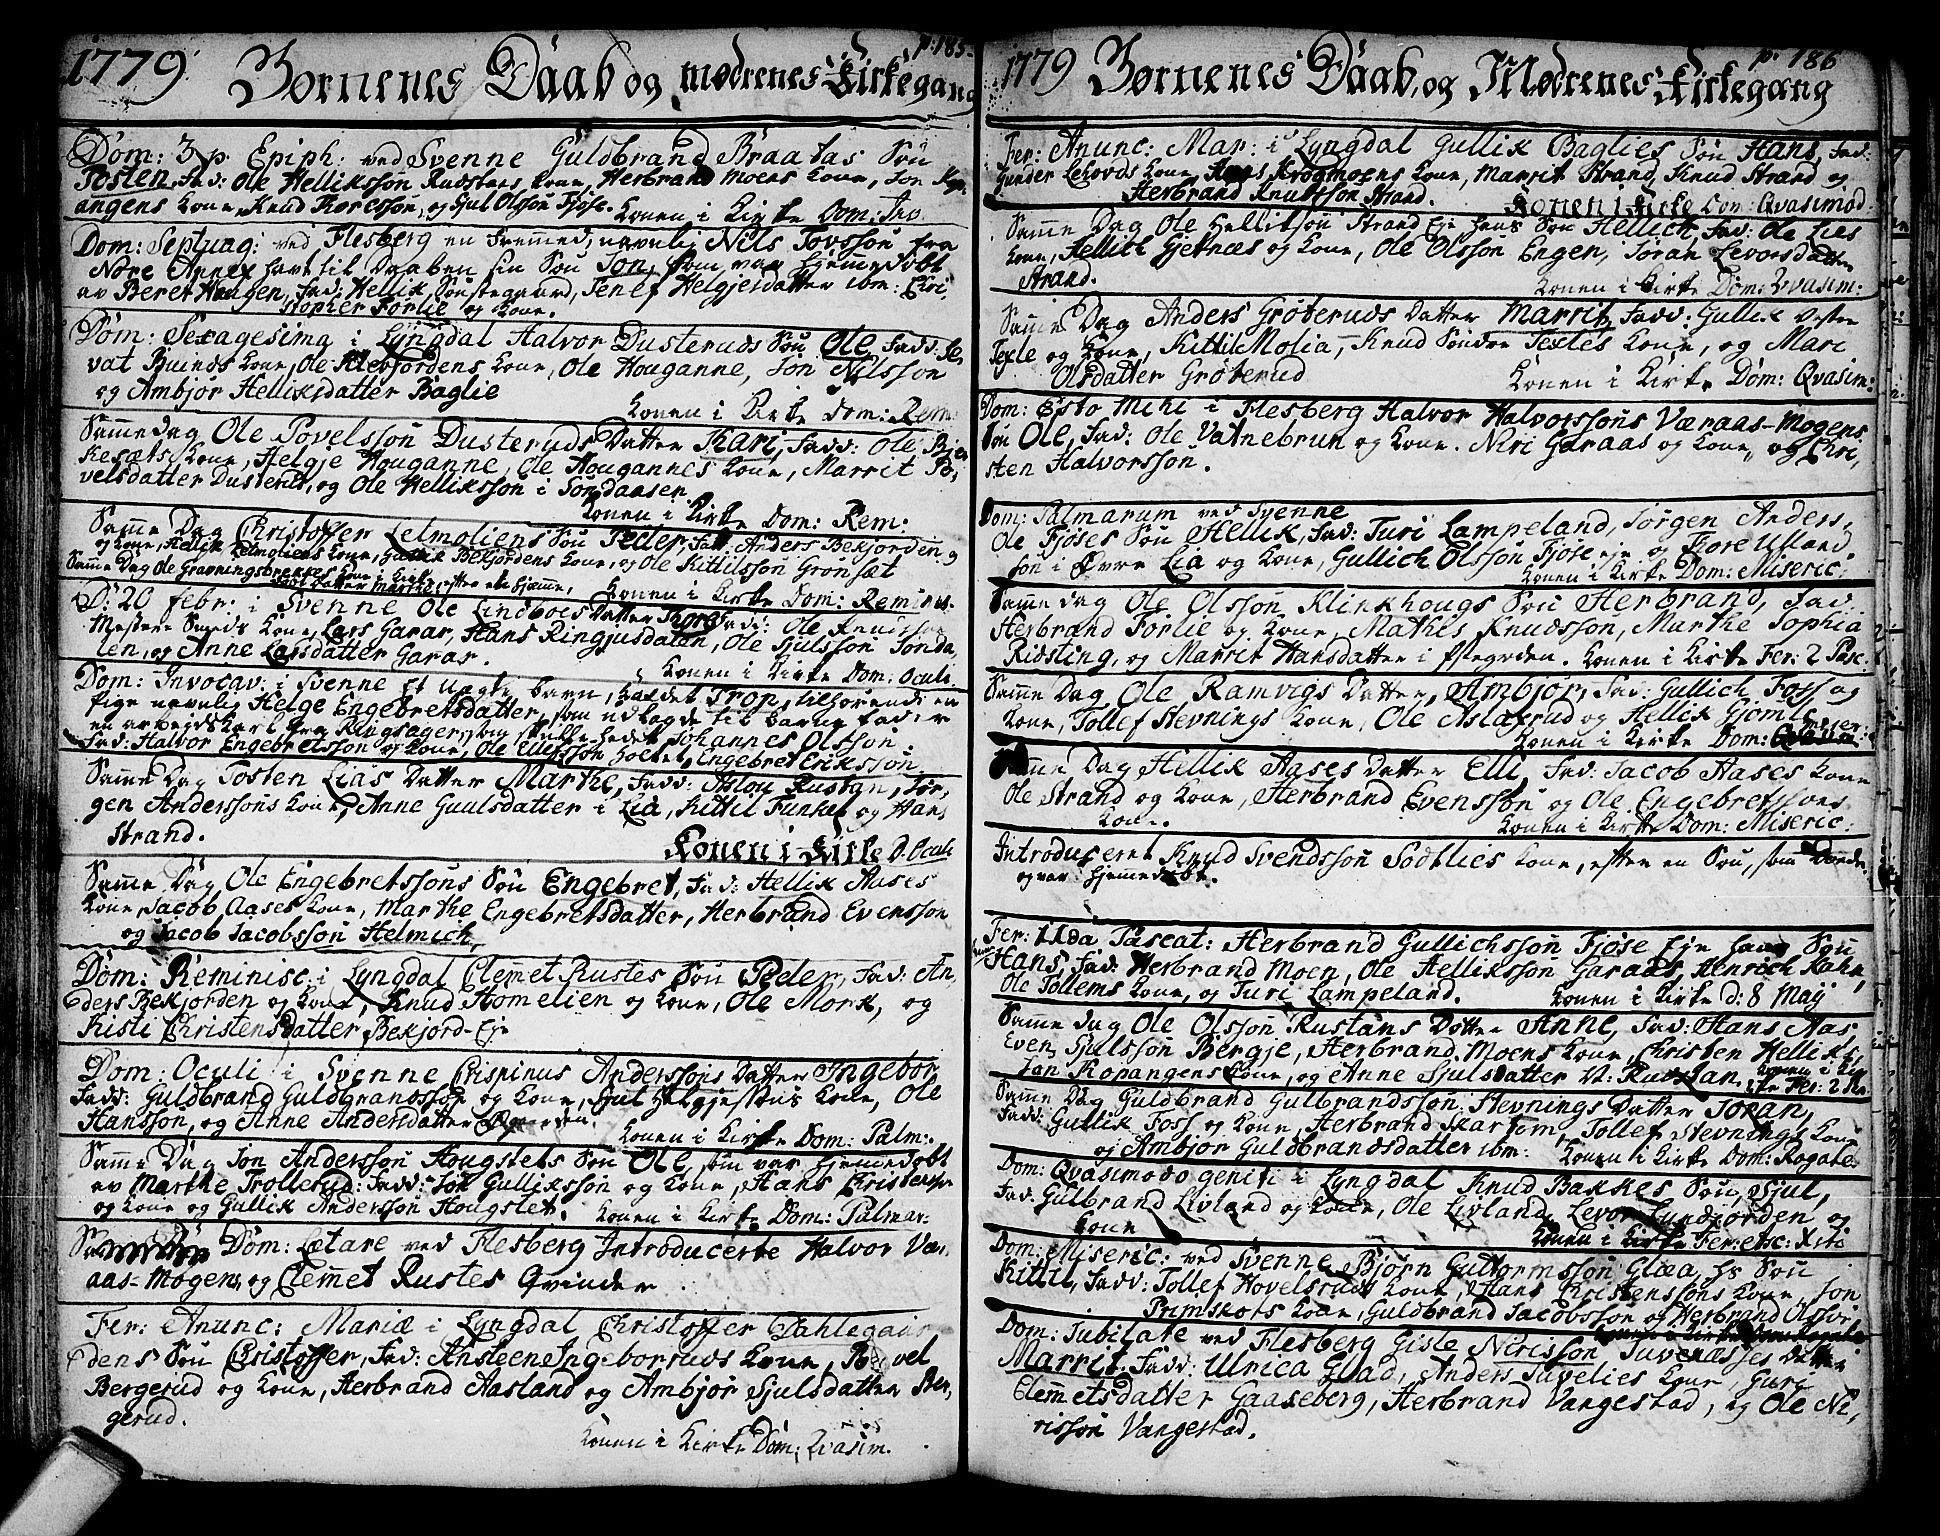 1779. Børnenes Daab og mødrenes Kirkegang p. 185.
Dom: 3 p. Epiph: ved Svenne Guldbrand Braatas Søn
Tosten, Fad: Ole Helliksson Rudstens Kone, Herbrand Moens Kone, Jon Kop-
angens Kone, Knud Thoresson, og Sjul Olsson Fjøse. Konen i Kirke Dom:
Dom: Septuag: ved Flesberg en Fremmed, navnlig Nils Tovsson fra
Nore Annex havt til Daaben sin Søn Jon, som var hjemmedøbt
av Beret Haugen, Fad: Hellik Søustegaard, Jenef Helgjesdatter ibm: Chri-
stopher Førlie og Kone.
Dom: Sexagesima i Lyngdal Halvor Dusteruds Søn Ole, Fadd:
vat Buinds Kone, Ole Klevjordens Kone, Ole Houganne, Jon Nilsson
og Ambjør Helliksdatter Baglie
Konen i Kirke Dom: Rem:
Samme dag Ole Povelssøn Dusteruds Datter Kari, Fadd: Ole
Kesæts Kone, Helgje Houganne, Ole Hougannes Kone, Marrit Po-
velsdatter Dusterud, og Ole Helliksson i Tondaasen
Konen i Kirke Dom: Rem:
Samme Dag Christoffer Lelmoliens Søn Peder, Fad: Anders Bekjorden og
og Kone, Hellik Lelmoliens Kone, Gullik Bekjordens Kone, og Ole Kittilsson Grønsæt
Samme Dag Ole Gravningsbrekkes Kone i Kirke
efter en hjemme. Konen i Kirke Dom: Reminis:
D: 20 febr: i Svenne Ole Lindboes Datter Thore, Fad: Ole Knudsson
Mestere Smeds Kone, Lars Garar, Hans Ringjusdalen, Ole Sjulsson Tonda-
len, og Anne Larsdatter Garar.
Konen i Kirke Dom: Oculi.
Dom: Invocav: i Svenne et Uægte barn, kaldet Tron, tilhørende en
Pige navnlig Helge Engebretsdatter, som udlagde til barne fader
en arbejdskarl fra Ringsager, som skulle hedet Johannes Olsson.
Fad: Halvor Engebretsson og Kone, Ole Ellefsson Holtet, Engebret Eriksson
Samme Dag Tosten Lias Datter Marthe, Fadd: Aslou Rustan, Jør-
gen Anderssons Kone, Anne Guulsdatter i Lia, Kittil Funkel og Hans
Strand.
Konen i Kirke D. Oculi
Samme Dag Ole Engebretssøns Søn Engebret, Fad: Hellik Aases
Kone, Jacob Aases Kone, Marthe Engebretsdatter, Herbrand Evensson
og Jacob Jacobsson Helmich.
Dom: Reminisc: i Lyngdal Clemmet Rustes Søn Peder, Fad: An-
ders Bekjorden og Kone, Knud Homelien og Kone, Ole Mork, og
Kisti Christensdatter Bekjord-Eje
Dom: Oculi i Svenne Crispinus Anderssons Datter Ingebor
Fadd: Guldbrand Guldbrandsson og Kone, Kone, Ole
Hansson, og Anne Andersdatter
Konen i Kirke Dom: Palm:
Samme Dag Jon Anderssøn Hougstets Søn Ole, som var hjemmedøbt
av Marthe Trollerud: Fadd: Jon Gulliksson og Kone, Hans Christensson
og Kone og Gullik Anderssøn Hougstet. Konen i Kirke Dom: Palmar:
Dom: Letare ved Flesberg Introducerte Halvor Vær-
aas-Mogens, og Clemmet Rustes Qvinder.
Fer: Anunc: Mariæ i Lyngdal Christoffer Dahlegaar-
dens Søn Christoffer, Fad: Ansteen Ingeborruds Kone, Povel
Bergerud og Kone, Herbrand Aasland og Ambjør Sjulsdatter Ber-
gerud.
Konen i Kirke Dom: Qvasim.
1779 Børnenes Daab, og Mødrenes Kirkegang p. 186
Fer: Anunc: Mar: i Lyngdal Gullik Baglies Søn Hans, Fad:
Gunder Lehovds Kone, Krogmoens Kone, Marrit Strand, Knud Strand og
Herbrand Knudsson Strand. Konen i Kirke Dom: Qvasimod
Samme Dag Ole Hellikson Strand Eje hans Søn Hellich, Fad: Ole Lies
Kone, Hellich Gjetnæs og Kone, Ole Olsson Engen, Jøran Levorsdatter
Strand. Konen i Kirke Dom: Qvasim:
Samme Dag Anders Grøteruds Datter Marrit, Fadd: Gullik Vestre
Texle og Kone, Kittil Molia, Knud Søndre Textes Kone, og Mari
Olsdatter Grøterud Konen i Kirke Dom: Qvasim:
Dom: Esto Mihi i Flesberg Halvor Halvorssøns Væraas-Mogens
Søn Ole, Fad: Ole Vatnebrun og Kone. Niri Garaas og Kone, og Chri-
sten Halvorssøn.
Dom: Palmarum ved Svenne
Ole Fjøses Søn Hellik, Fad: Turi Lampeland, Jørgen Anders-
son i Øvre Lia og Kone, Gullich Olsson Fjøse eje og Thore Ulland.
Konen i Kirke Dom: Miseric:
Samme dag Ole Olssøn Klinkhougs Søn Herbrand, Fad:
Herbrand Førlie og Kone, Mathis Knudsson, Marthe Sophia
Ridsting, og Marrit Hansdatter i Præstegorden. Konen i Kirke Fer: 2 Pasc.
Samme Dag Ole Ramvigs Datter, Ambjør, Fad: Gullich Foss og
Kone, Tollef Stevnings Kone, Ole Aslaxrud og Hellik Gjomle
Konen i Kirke Dom: Miser:
Samme Dag Hellik Aases Datter Elli, Fad: Jacob Aases Kone
Ole Strand og Kone, Herbrand Evenssøn og Ole Engebretssons
Kone. Konen i Kirke Dom: Miseric:
Introduceret Knud Svendssøn Sodtlies Kone, efter en Søn, som døde,
og var hjemmedøbt.
Fer: IIda Pascat: Herbrand Gullichssøn Fjøse Eje hans Søn
Hans, Fad: Herbrand Moen, Ole Helliksson Garaas, Henrich Kahn,
Ole Tollems Kone, og Turi Lampeland. Konen i Kirke d: 8 Maij
Samme dag Ole Olssøn Rustans Datter Anne, Fad: Hans Aas,
Even Sjulssøn Bergje, Herbrand Moens Kone, Christen Hellik-
Jon Kopangens Kone, og Anne Sjulsdatter V: Rustan. Konen i Kir-
ke Fer: 2
Samme Dag Guldbrand Gulbrandssøn Stevnings Datter Joran,
Fadd: Gullik Foss og Kone, Herbrand Skartum, Tollef Stevnings Kone
og Ambjør Guldbrandsdatter ibm: Konen i Kirke Dom: Rogate
Dom: Qvasimodo geniti i Lyngdal Knud Bakkes Søn, Sjul,
Fad: Gulbrand Livland og Kone, Ole Livland, Levor Lundjorden, og
Kone Konen i Kirke Fer:
Dom: Miseric: ved Svenne Bjørn Guttormsson Glæa, hs Søn
Kittil, Fadd: Tollef Hovelsruds Kone, Hans Kristenssøns Kone, Jon
Primskots Kone, Guldbrand Jacobsson og Herbrand Olsson
Konen i Kirke Dom: Rogate
Dom: Jubilate ved Flesberg Gisle Nirisson Juvenæsses Datter
Marrit, Fadd: Ulrica Glad, Anders Juvelies Kone, Guri
Clemmetsdatter Gaaseberg, Herbrand Vangestad, og Ole Ni-
risson Vangestad.